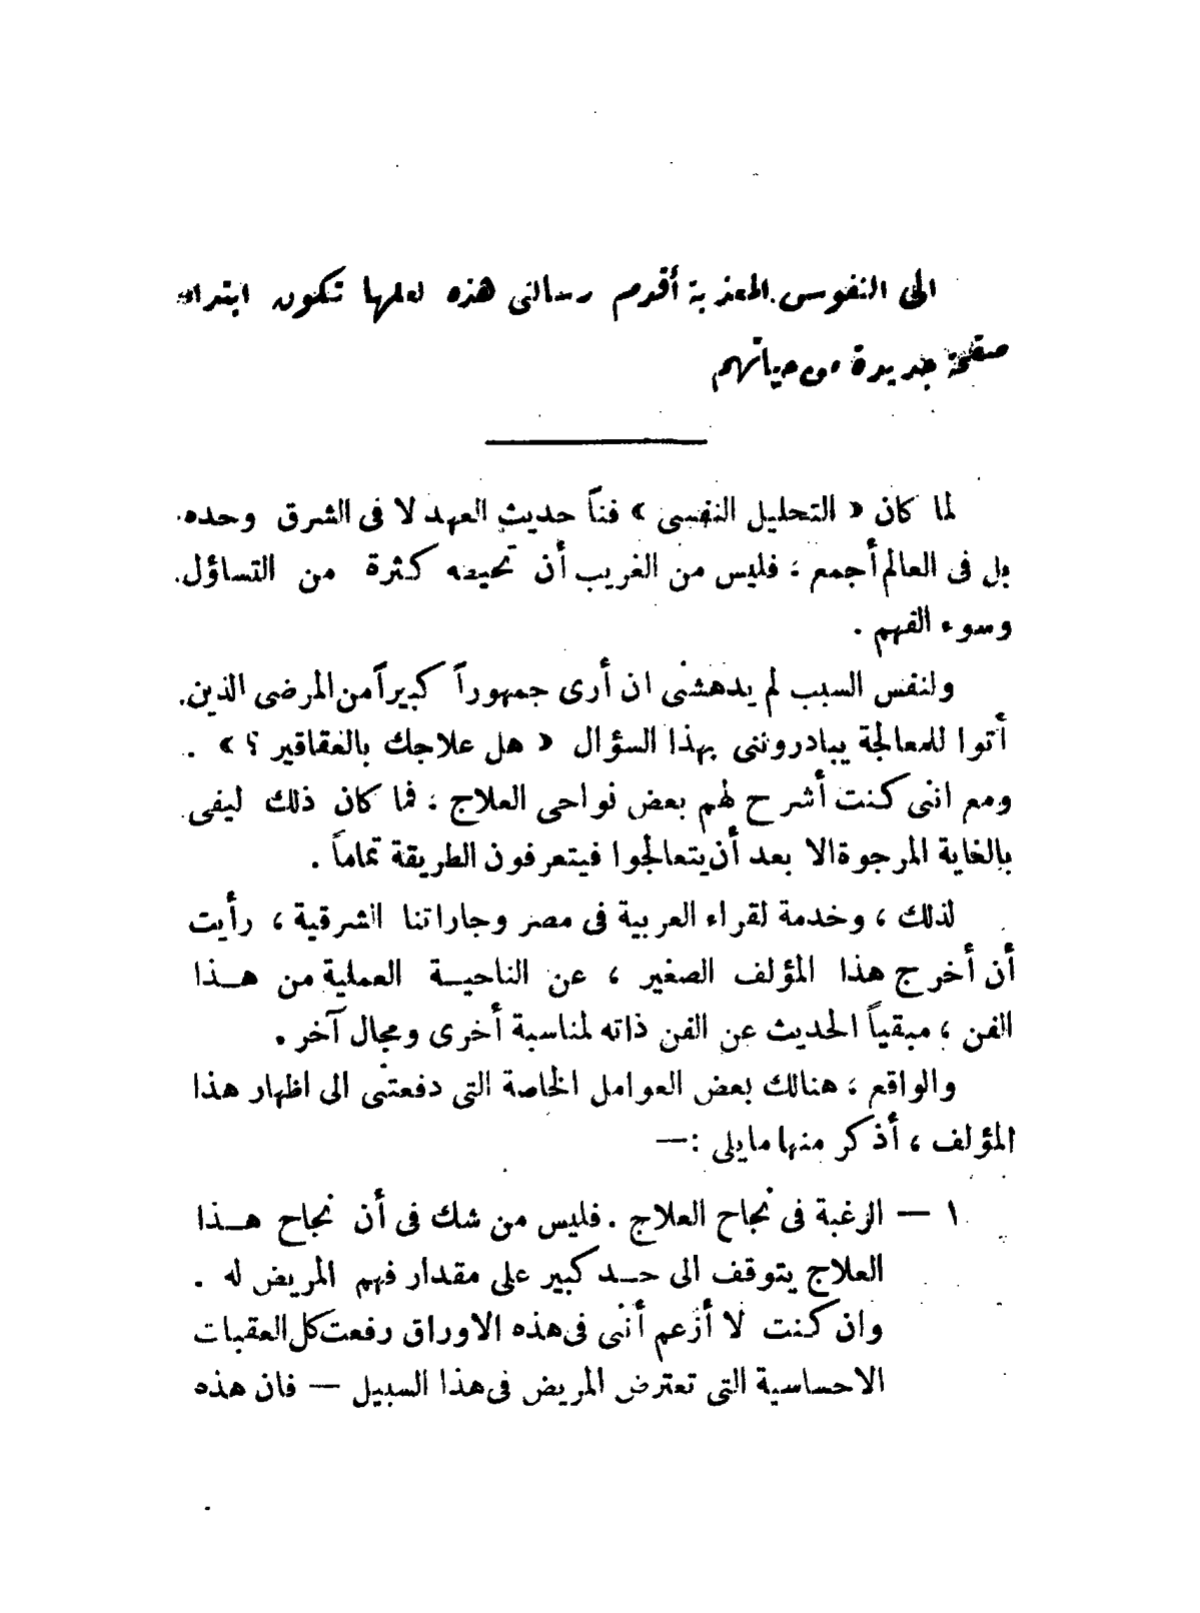 الى النفوس المعذبة أقدم رسالتى هذه لعلها تكون ابتداء
صفحة جديدة من حياتهم
لما كان « التحليل النفسى » فناً حديث العهد لا فى الشرق وحده
بل فى العالم أجمع ، فليس من الغريب أن تحيطه كثرة من التساؤل
وسوء الفهم .
ولنفس السبب لم يدهشنى ان أرى جمهوراً كبيراً من المرضى الذين
أتوا للمعالجة يبادروننى بهذا السؤال « هل علاجك بالعقاقير ؟ » .
ومع اننى كنت أشرح لهم بعض نواحى العلاج ، فما كان ذلك ليفى
بالغاية المرجوة الا بعد أن يتعالجوا فيتعرفون الطريقة تماماً .
لذلك ، وخدمة لقراء العربية فى مصر وجاراتنا الشرقية ، رأيت
أن أخرج هذا المؤلف الصغير ، عن الناحيــة العملية من هــذا
الفن ، مبقياً الحديث عن الفن ذاته لمناسبة أخرى ومجال آخر .
والواقع ، هنالك بعض العوامل الخاصة التى دفعتنى الى اظهار هذا
المؤلف ، أذكر منها مايلى :—
١ — الرغبة فى نجاح العلاج . فليس من شك فى أن نجاح هــذا
العلاج يتوقف الى حــد كبير على مقدار فهم المريض له .
وان كنت لا أزعم أننى فى هذه الاوراق رفعت كل العقبات
الاحساسية التى تعترض المريض فى هذا السبيل — فان هذه